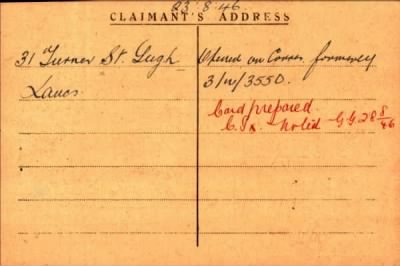 23.8.46.
CLAIMANT'S ADDRESS
31 Turner St. Leigh
Lancs.
Opened on Corres. formerly
3/W/3550.
Card prepared.
Noted G.G. 28 8/46